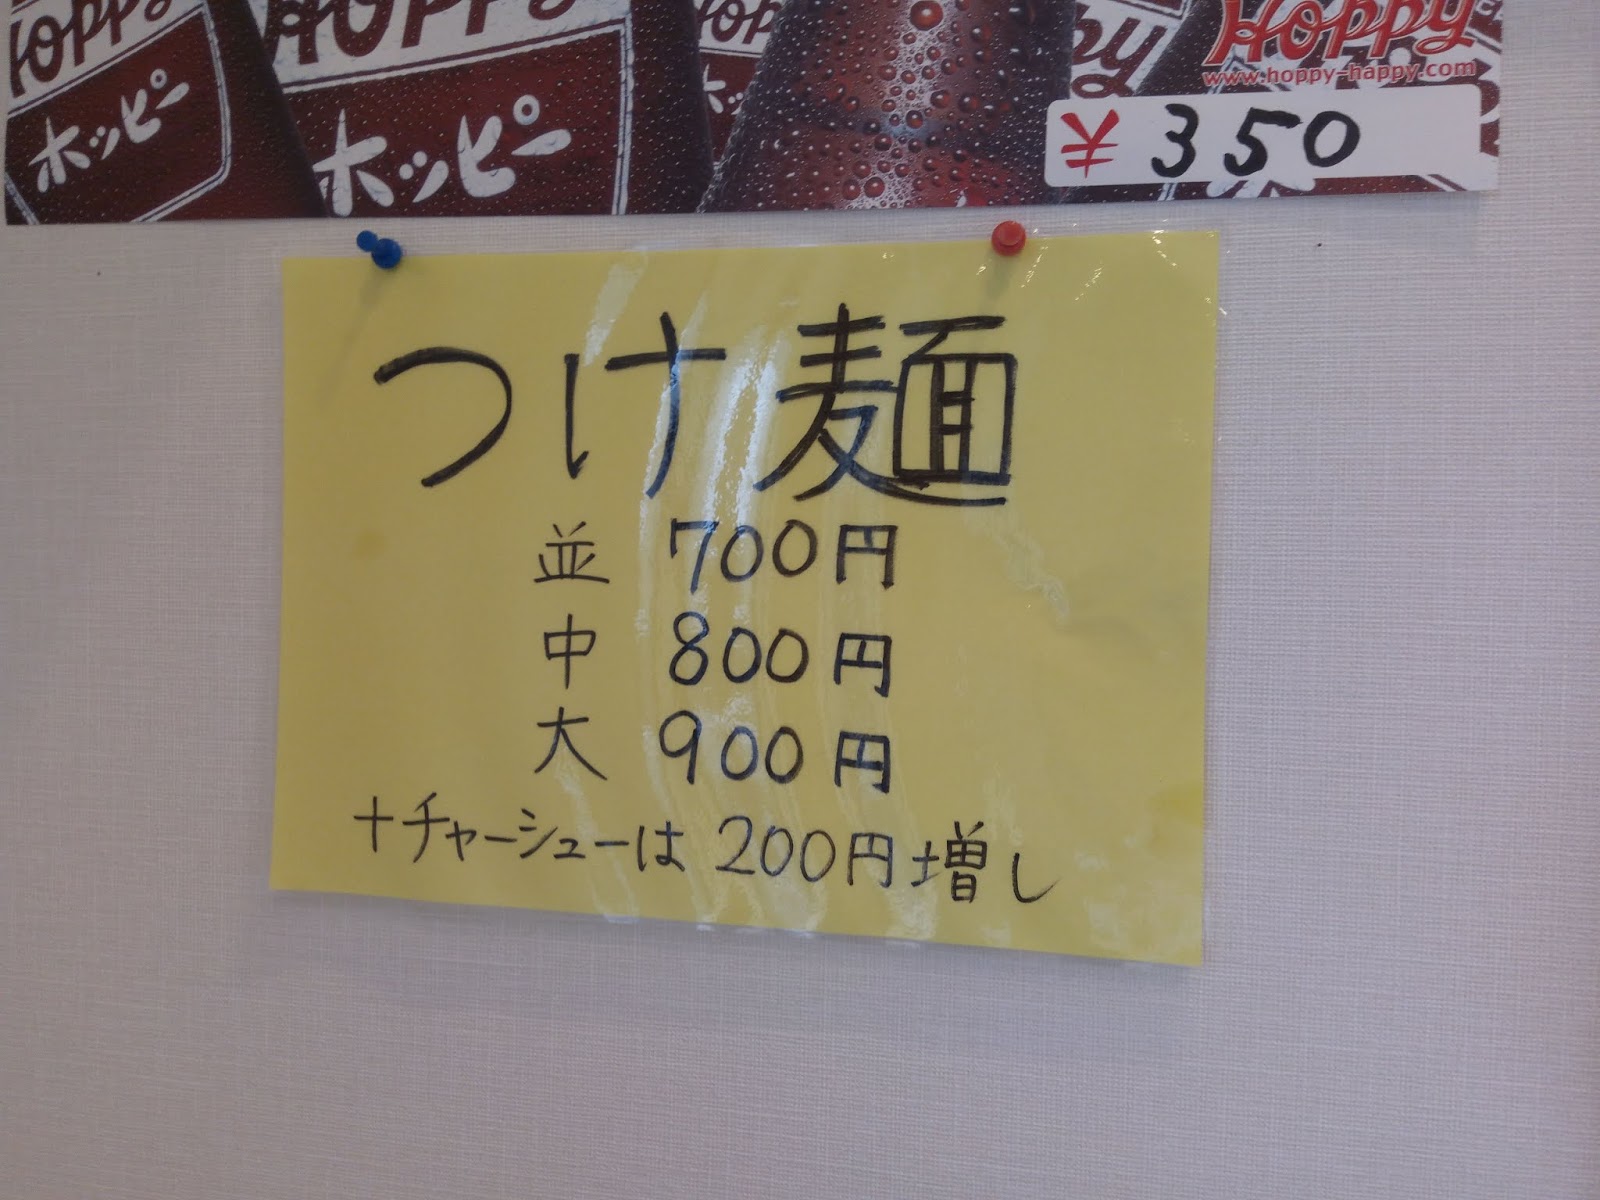 Hoppy
Hoppy
Hoppy
www.hoppy-happy.com
ホッピー
ホッピー
¥350
つけ麺
並 700円
中 800円
大 900円
+チャーシューは 200円増し